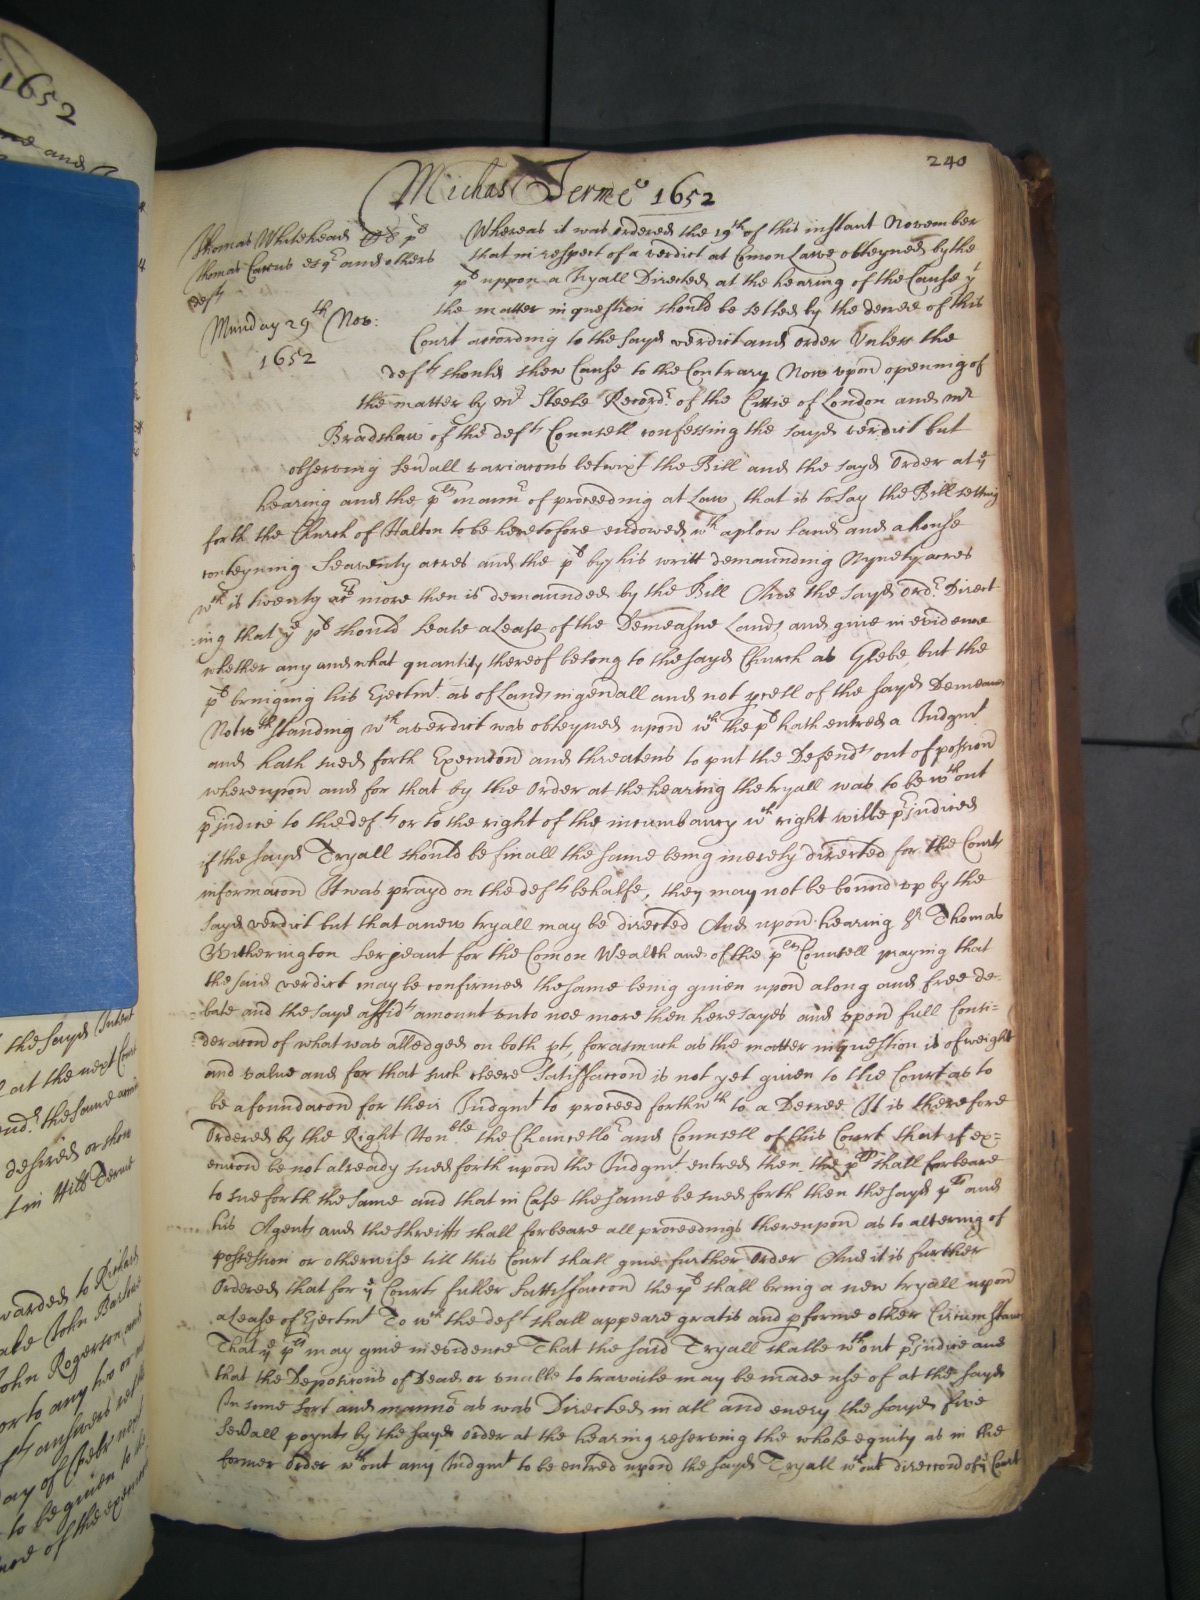 240
Michas Terme 1652
Thomas Whitehead pt
Thomas Carus esqr and others
Defts
Munday 29th Nov:
1652
Whereas it was ordered the 19th of this instant November
that in respect of a verdict at Comon Lawe obteyned by the
pt uppon a Tryall Directed at the hearing of the Cause yt
the matter in question should be setled by the decree of this
Court according to the sayd verdict and order Unless the
defts should shew Cause to the Contrary Now upon opening of
the matter by mr Steele Recordr of the Cittie of London and mr
Bradshaw of the defts Counsell confessing the sayd verdict but
observing sevall variacons betwixt the Bill and the sayd Order at ye
hearing and the plts mannr of proceeding at Law, that is to say the Bill setting
forth the Church of Halton to be heretofore endowed wth a plow land and a house
conteyning Seaventy acres and the pt by his writt demaunding Nynety acres
wch is twenty acs more then is demaunded by the Bill And the sayd Ordr Direct
ing that ye pt should seale a Lease of the Demeasne Lands and give in evidence
whether any and what quantity thereof belong to the sayd Church as Glebe, but the
pt bringing his Ejectmt as of Lands in genall and not pcell of the sayd Demeanes
Notwthstanding wch a verdict was obteyned upon wch the pt hath entred a Judgmt
and hath sued forth Execucon and threatens to put the Defendts out of possion
whereupon and for that by the Order at the hearing the tryall was to be wthout
pjudice to the defts or to the right of the incumbancy wch right wilbe pjudiced
if the sayd Tryall should be finall the same being meerely directed for the Courts
informacon It was prayd on the defts behalfe, they may not be bound up by the
sayd verdict but that a new tryall may be directed And upon hearing Sr Thomas
Witherington Serjeant for the Comon Wealth and of the plts Counsell praying that
the said verdict may be confirmed the same being given upon a long and free de-
bate and the sayd affidts amount unto noe more then heresayes and upon full consi=
deracon of what was alledged on both pts, forasmuch as the matter in question is of weight
and value and for that such cleere Satisfaccon is not yet given to the Court as to
be a foundacon for their Judgmt to proceed forthwth to a Decree It is therefore
Ordered by the Right Honble the Chancellor and Counsell of this Court that if ex=
ecucon be not already sued forth upon the Judgmt entred then the pt shall forbeare
to sue forth the same and that in Case the same be sued forth then the sayd pts and
his Agents and the shreiffs shall forbeare all proceedings thereupon as to altering of
possession or otherwise till this Court shall give further Order And it is further
Ordered that for ye Courts fuller Sattisfaccon the pt shall bring a new tryall upon
a Lease of Ejectmt To wch the deft shall appeare gratis and pforme other Circumstances
That ye pts may give in evidence That the said Tryall shalbe wthout pjudice and
that the Deposicons of Dead or unable to travaile may be made use of at the sayd
In some sort and mannor as was Directed in all and every the sayd five
Sevall poynts by the sayd order at the hearing reserving the whole equity as in the
former Order wthout any Judgmt to be entred upon the sayd Tryall wthout direccon of ye Court
1652
and
the sayd
at the next Court
the same
desired or
in Hill Terme
warded to
John
John Rogerson and
or to any two or
answers
day of
to be given to the
of the